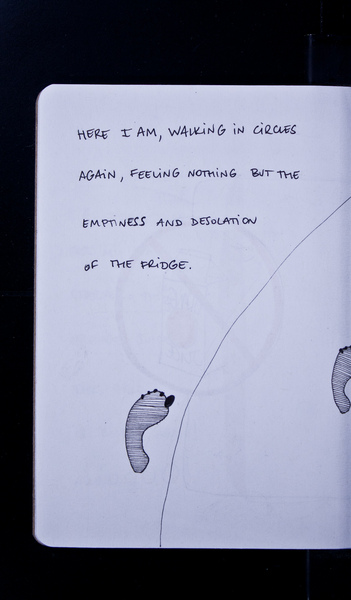 HERE I AM, WALKING IN CIRCLES
AGAIN, FEELING NOTHING BUT THE
EMPTINESS AND DESOLATION
OF THE FRIDGE.